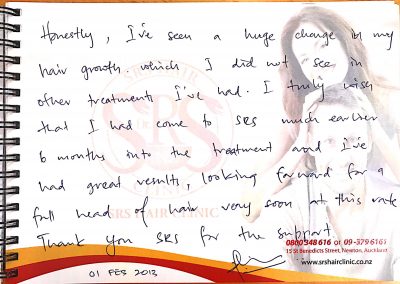 Honestly, I've seen a huge change in my
hair growth. which I did not see in
other treatments I've had. I truly wish
that I had come to SRS much earlier
6 months into the treatment and I've
had great results, looking forward for a
full head of hair very soon at this rate
Thank you SRS for the support
SRS HAIR CLINIC
0800 348 616 or 09-379 6161
15 St Benedicts Street, Newton, Auckland
www.srshairclinic.co.nz
01 FEB 2013